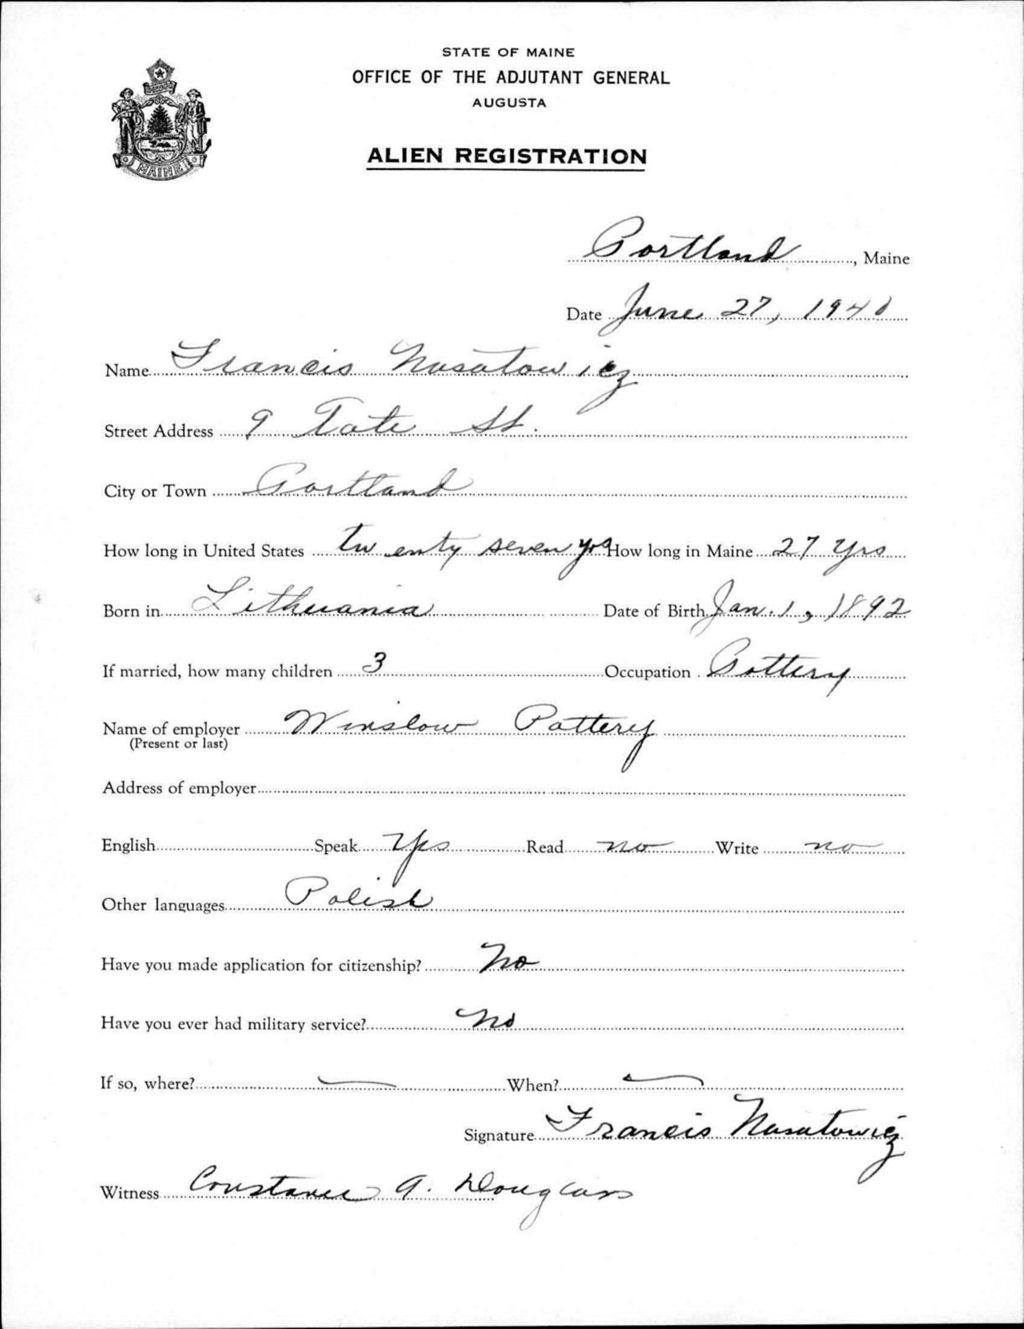 STATE OF MAINE
OFFICE OF THE ADJUTANT GENERAL
AUGUSTA
ALIEN REGISTRATION
MAINE
Portland, Maine
Date June 27, 1940
Name Francis Nasatowicz
Street Address 9 Tate St.
City or Town Portland
How long in United States twenty seven yrs How long in Maine 27 yrs
Born in Lithuania Date of Birth Jan. 1, 1892
If married, how many children 3 Occupation Pottery
Name of employer Winslow Pottery
(Present or last)
Address of employer
English Speak Yes Read no Write no
Other languages Polish
Have you made application for citizenship? No
Have you ever had military service? No
If so, where? — When? —
Signature Francis Nasatowicz
Witness Constance A. Douglass